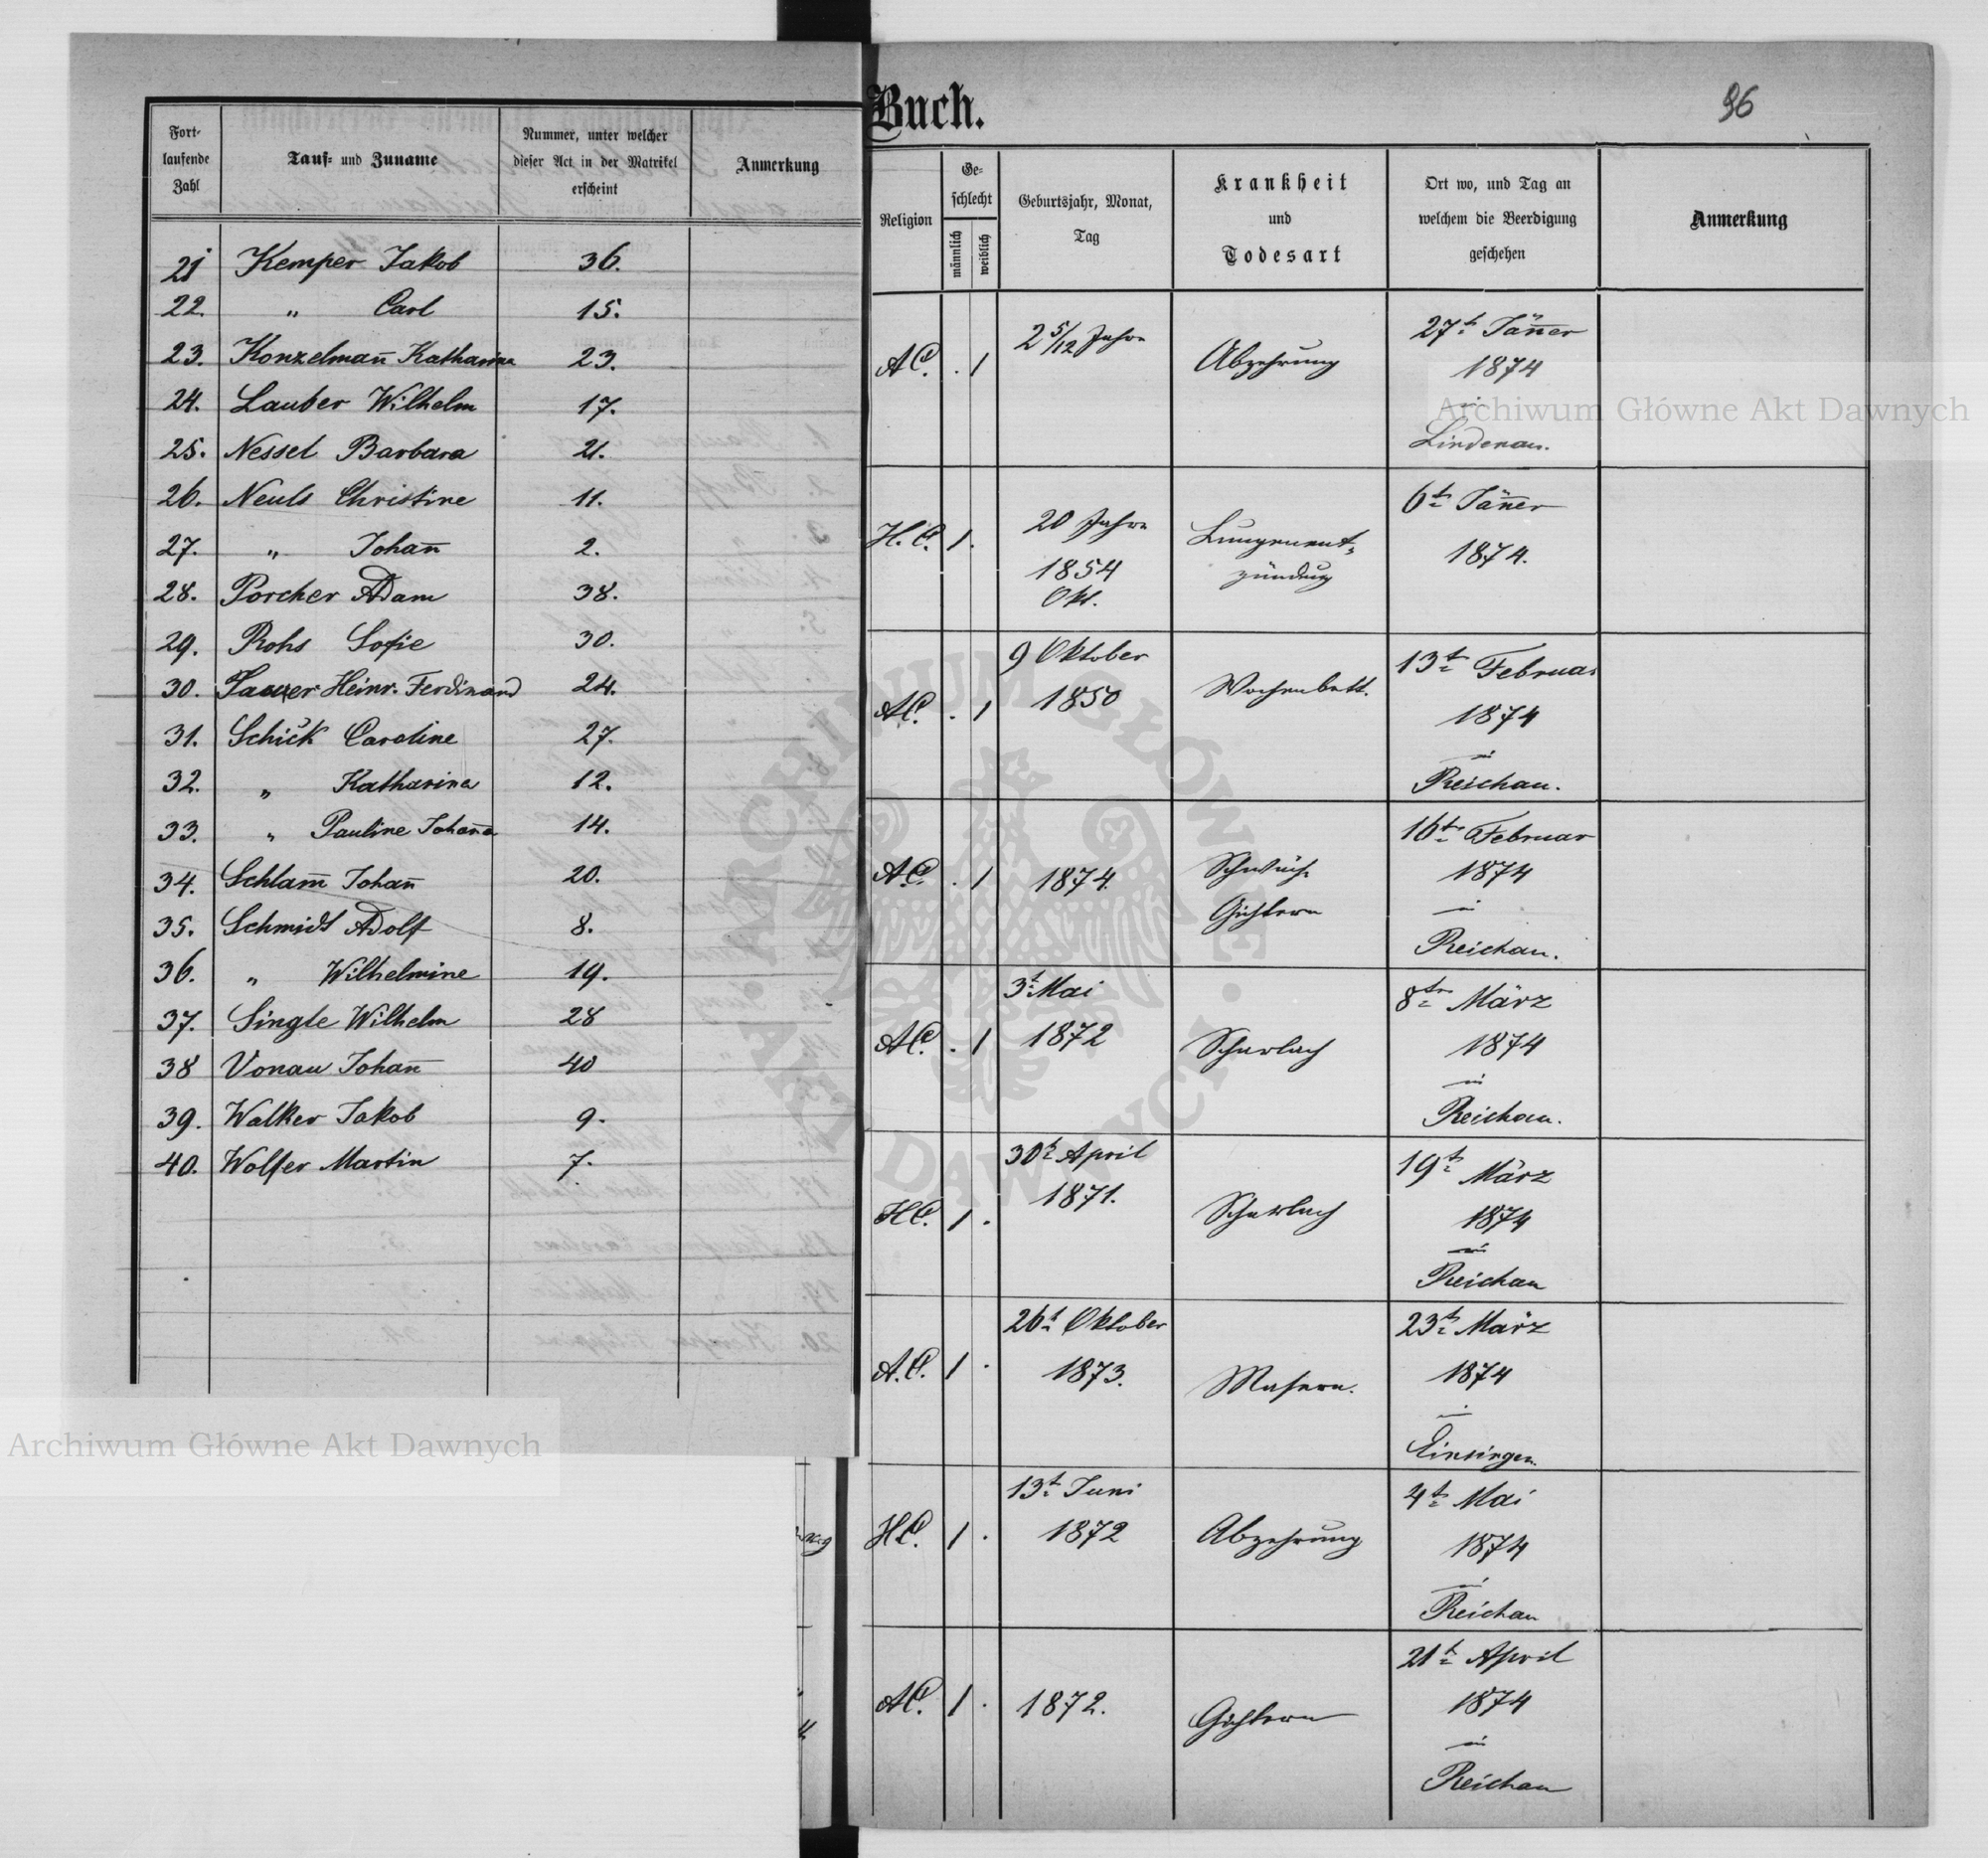 Fort-
laufende
Zahl
Tauf- und Zuname
Nummer, unter welcher
dieser Act in der Matrikel
erscheint
Anmerkung
21 Kemper Jakob 36.
22. " Carl 15.
23. Konzelman̄ Katharina 23.
24. Lauber Wilhelm 17.
25. Nessel Barbara 21.
26. Neuls Christine 11.
27. " Johan̄ 2.
28. Porcher Adam 38.
29. Rohs Sofie 30.
30. Sauer Heinr. Ferdinand 24.
31. Schick Caroline 27.
32. " Katharina 12.
33. " Pauline Johan̄a 14.
34. Schlam̄ Johan̄ 20.
35. Schmidt Adolf 8.
36. " Wilhelmine 19.
37. Single Wilhelm 28
38 Vonau Johan̄ 40
39. Walker Jakob 9.
40. Wolfer Martin 7.
Buch.
96
Religion
Ge-
schlecht
männlich
weiblich
Geburtsjahr, Monat,
Tag
Krankheit
und
Todesart
Ort wo, und Tag an
welchem die Beerdigung
geschehen
Anmerkung
A.C. . 1
2 5/12 Jahre
Abzehrung
27t Jän̄er
1874
in
Lindenau.
H.C. 1 .
20 Jahre
1854
Okt.
Lungenent-
zündung
6t Jän̄er
1874.
A.C. . 1
9 Oktober
1850
Wochenbett.
13t Februar
1874
in
Reichau.
A.C. . 1
1874.
Gichtern
16t Februar
1874
in
Reichau.
A.C. . 1
3t Mai
1872
Scharlach
8t März
1874
in
Reichau.
H.C. 1 .
30t April
1871.
Scharlach
19t März
1874
in
Reichau
A.C. 1 .
26t Oktober
1873.
Masern.
23t März
1874
in
Einsingen.
H.C. 1 .
13t Juni
1872
Abzehrung
4t Mai
1874
in
Reichau
A.C. 1 .
1872.
Gichtern
21t April
1874
in
Reichau
Archiwum Główne Akt Dawnych
Archiwum Główne Akt Dawnych
ARCHIWUM GŁÓWNE • AKT DAWNYCH •